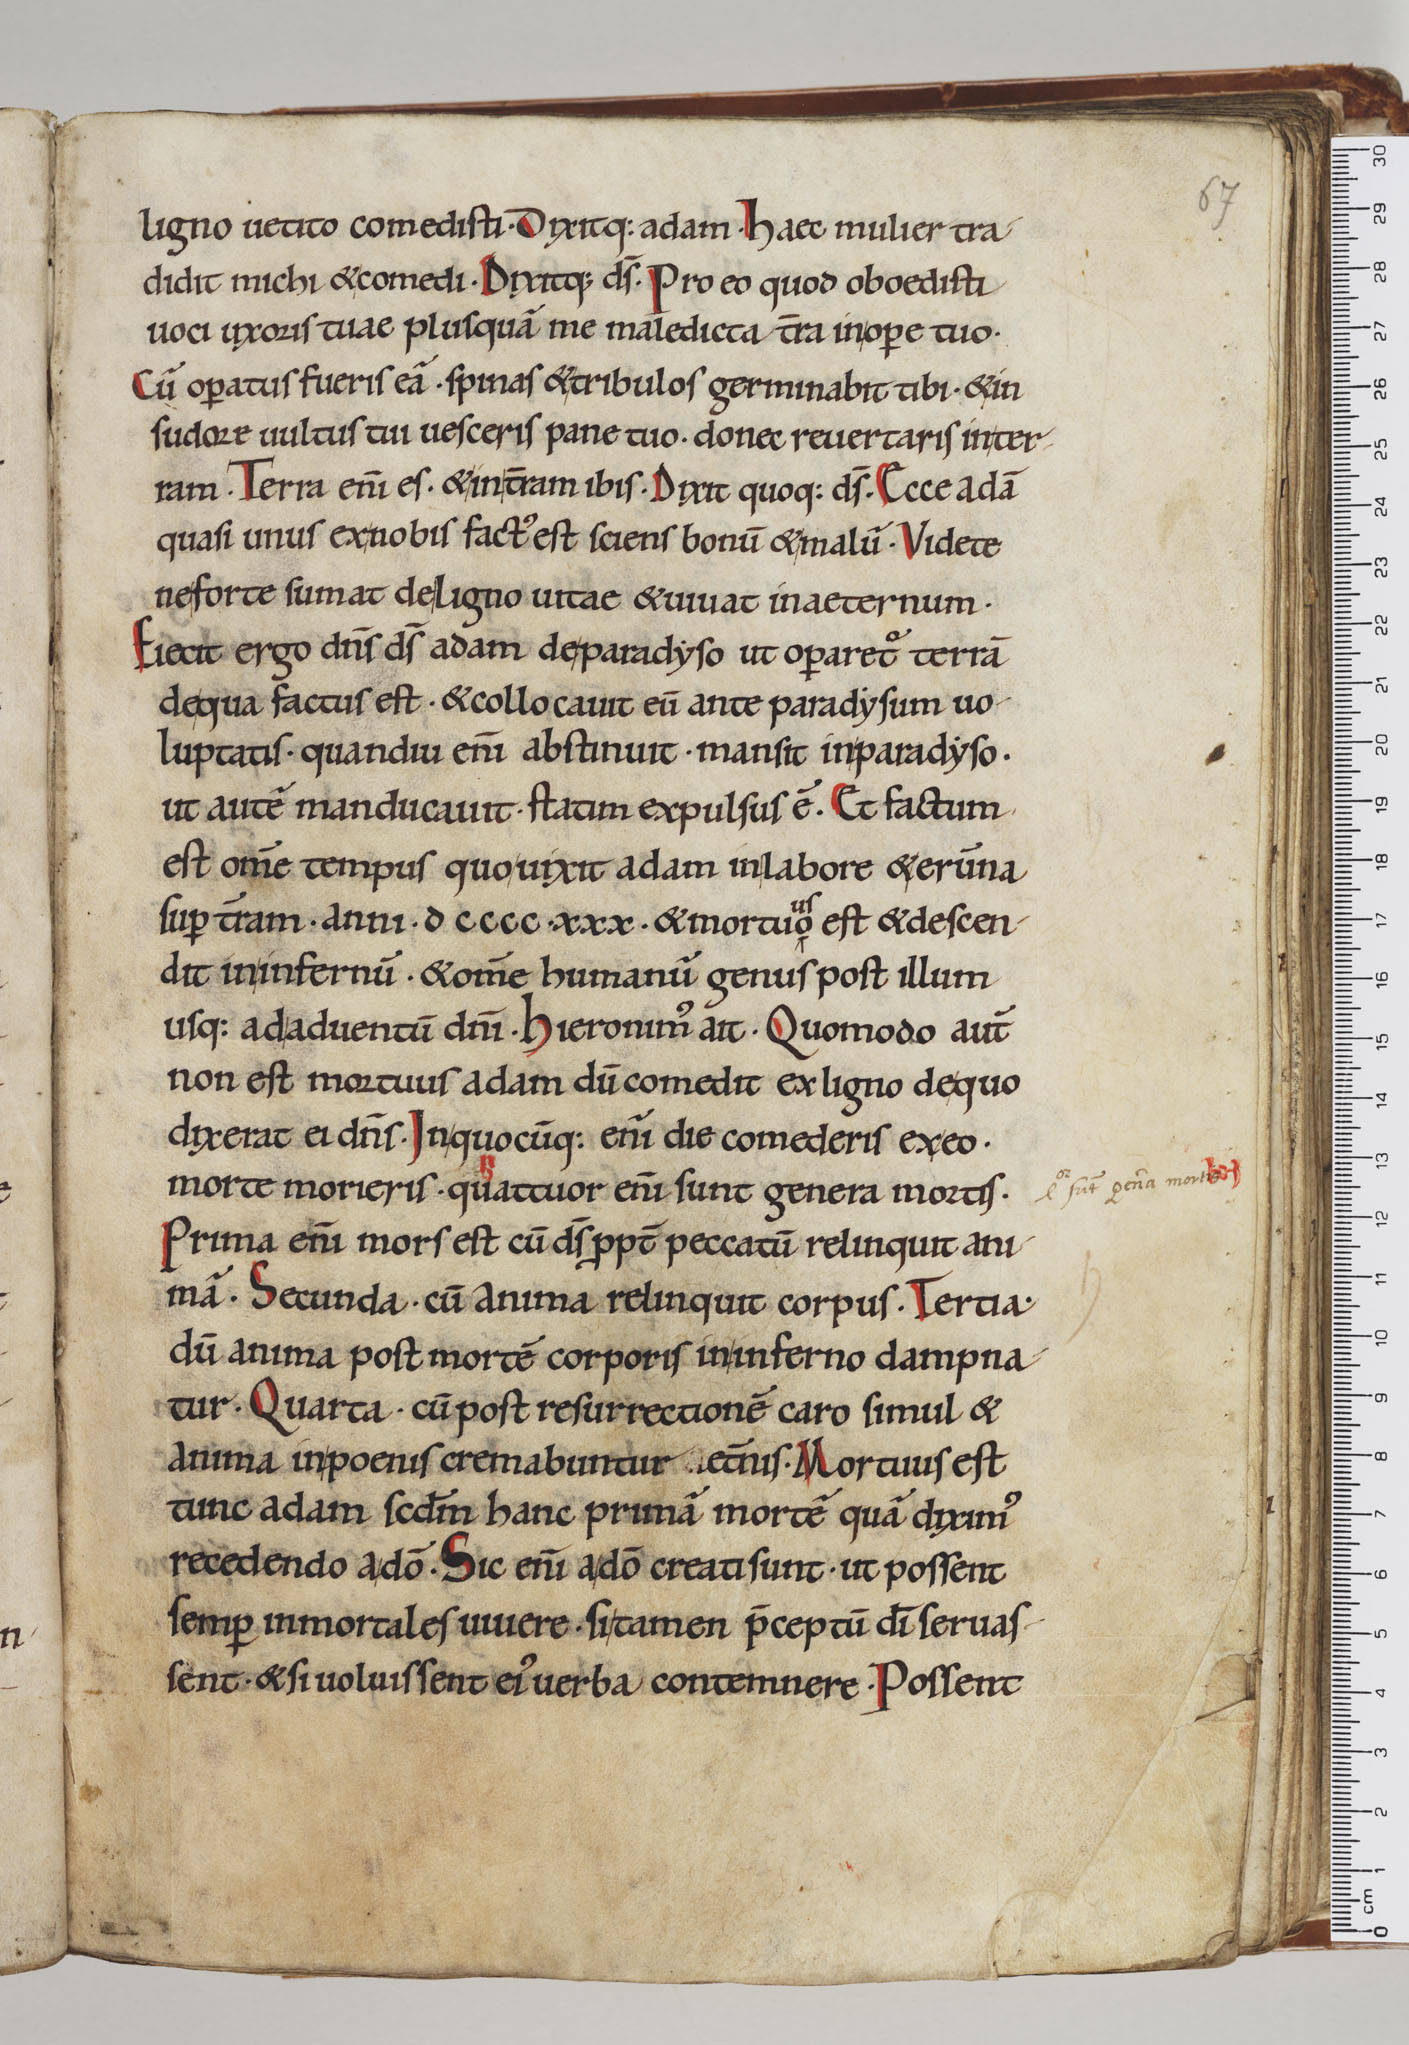 67
ligno uetito comedisti · Dixitq: adam · haec mulier tra-
didit michi & comedi · Dixitq; ds̄. Pro eo quod oboedisti
uoci uxoris tuae plusquā me maledicta t̄ra inop̱e tuo·
Cū op̱atus fueris eā · spinas & tribulos germinabit tibi · & in
sudore uultus tui uesceris pane tuo · donec reuertaris inter-
ram · Terra eni̅ es · & int̄ram ibis · Dixit quoq: ds̄. Ecce adā
quasi unus exnobis fact᾿ est sciens bonū & malū · Videte
neforte sumat deligno uitae & uiuat inaeternum ·
Eiecit ergo dn̄s ds̄ adam deparadyso ut op̱aret᷑ terrā
dequa factus est · & collocauit eū ante paradysum uo-
luptatis · quandiu eni̅ abstinuit · mansit inparadyso ·
ut autē manducauit · statim expulsus ē · Et factum
est om̄e tempus quo uixit adam inlabore & erūna
sup̱ t̄ram · anni · d cccc · xxx · & mortuo us est & descen-
dit ininfernū · & om̄e humanū genus post illum
usq: adaduentū dn̄i · hieronim᾿ ait · Quomodo aut̄
non est mortuus adam dū comedit ex ligno dequo
dixerat ei dn̄s · Inquocūq: eni̅ die comederis exeo ·
morte morieris · quattuor eni̅ sunt genera mortis ·
sūt gen̄a mortis
Prima eni̅ mors est cū ds̄ ꝓpt̄ peccatū relinquit ani-
mā · Secunda · cū anima relinquit corpus · Tertia ·
dū anima post mortē corporis ininferno dampna-
tur · Quarta · cū post resurrectionē caro simul &
anima inpoenis cremabuntur et̄nis · Mortuus est
tunc adam scdm̄ hanc primā mortē quā dixim᾿
recedendo adō · Sic eni̅ adō creati sunt · ut possent
semp̱ inmortales uiuere · si tamen p̄ceptū dī seruas-
sent · & si uoluissent ei᾿ uerba contemnere · Possent